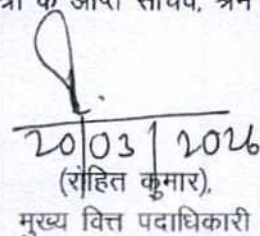 के आप्त सचिव, श्रम
20/03/2026
(रोहित कुमार),
मुख्य वित्त पदाधिकारी